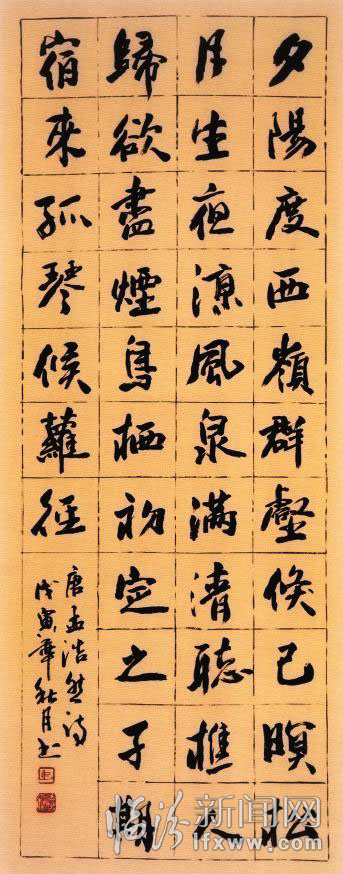 夕陽度西嶺群壑倏已暝松
月生夜涼風泉滿清聽樵人
歸欲盡煙鳥栖初定之子期
宿來孤琴候蘿徑
唐孟浩然詩
戊寅年秋月書
临汾新闻网
lfxww.com